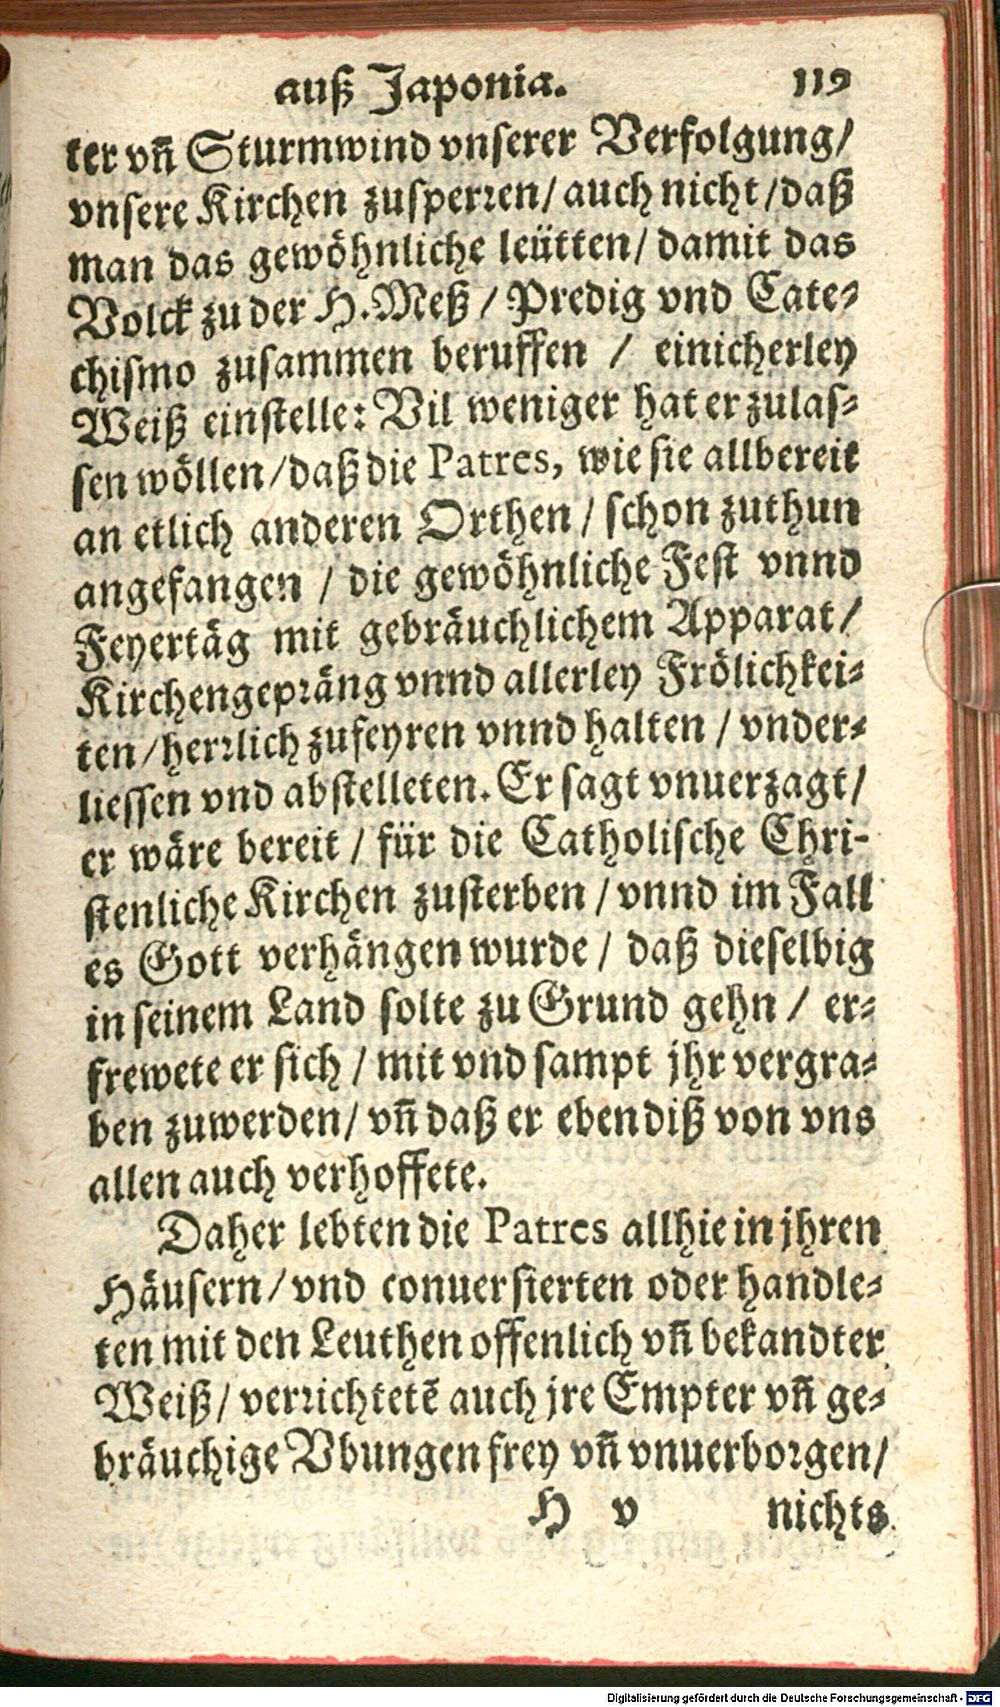 auß Japonia. 119
ter vñ Sturmwind vnserer Verfolgung/
vnsere Kirchen zusperren/ auch nicht / daß
man das gewöhnliche leütten/ damit das
Volck zu der H. Meß / Predig vnd Cate-
chismo zusammen beruffen / einicherley
Weiß einstelle: Vil weniger hat er zulas-
sen wöllen/ daß die Patres, wie sie allbereit
an etlich anderen Orthen / schon zuthun
angefangen / die gewöhnliche Fest vnnd
Feyertäg mit gebräuchlichem Apparat/
Kirchengepräng vnnd allerley Frölichkei-
ten / herrlich zufeyren vnnd halten / vnder-
liessen vnd abstelleten. Er sagt vnuerzagt/
er wäre bereit / für die Catholische Chri-
stenliche Kirchen zusterben / vnnd im Fall
es Gott verhängen wurde / daß dieselbig
in seinem Land solte zu Grund gehn / er-
frewete er sich / mit vnd sampt jhr vergra-
ben zuwerden/ vñ daß er eben diß von vns
allen auch verhoffete.
Daher lebten die Patres allhie in jhren
Häusern / vnd conuersierten oder handle-
ten mit den Leuthen offenlich vñ bekandter
Weiß/ verrichtetẽ auch jre Empter vñ ge-
bräuchige Vbungen frey vñ vnuerborgen/
H v nichts
Digitalisierung gefördert durch die Deutsche Forschungsgemeinschaft - DFG